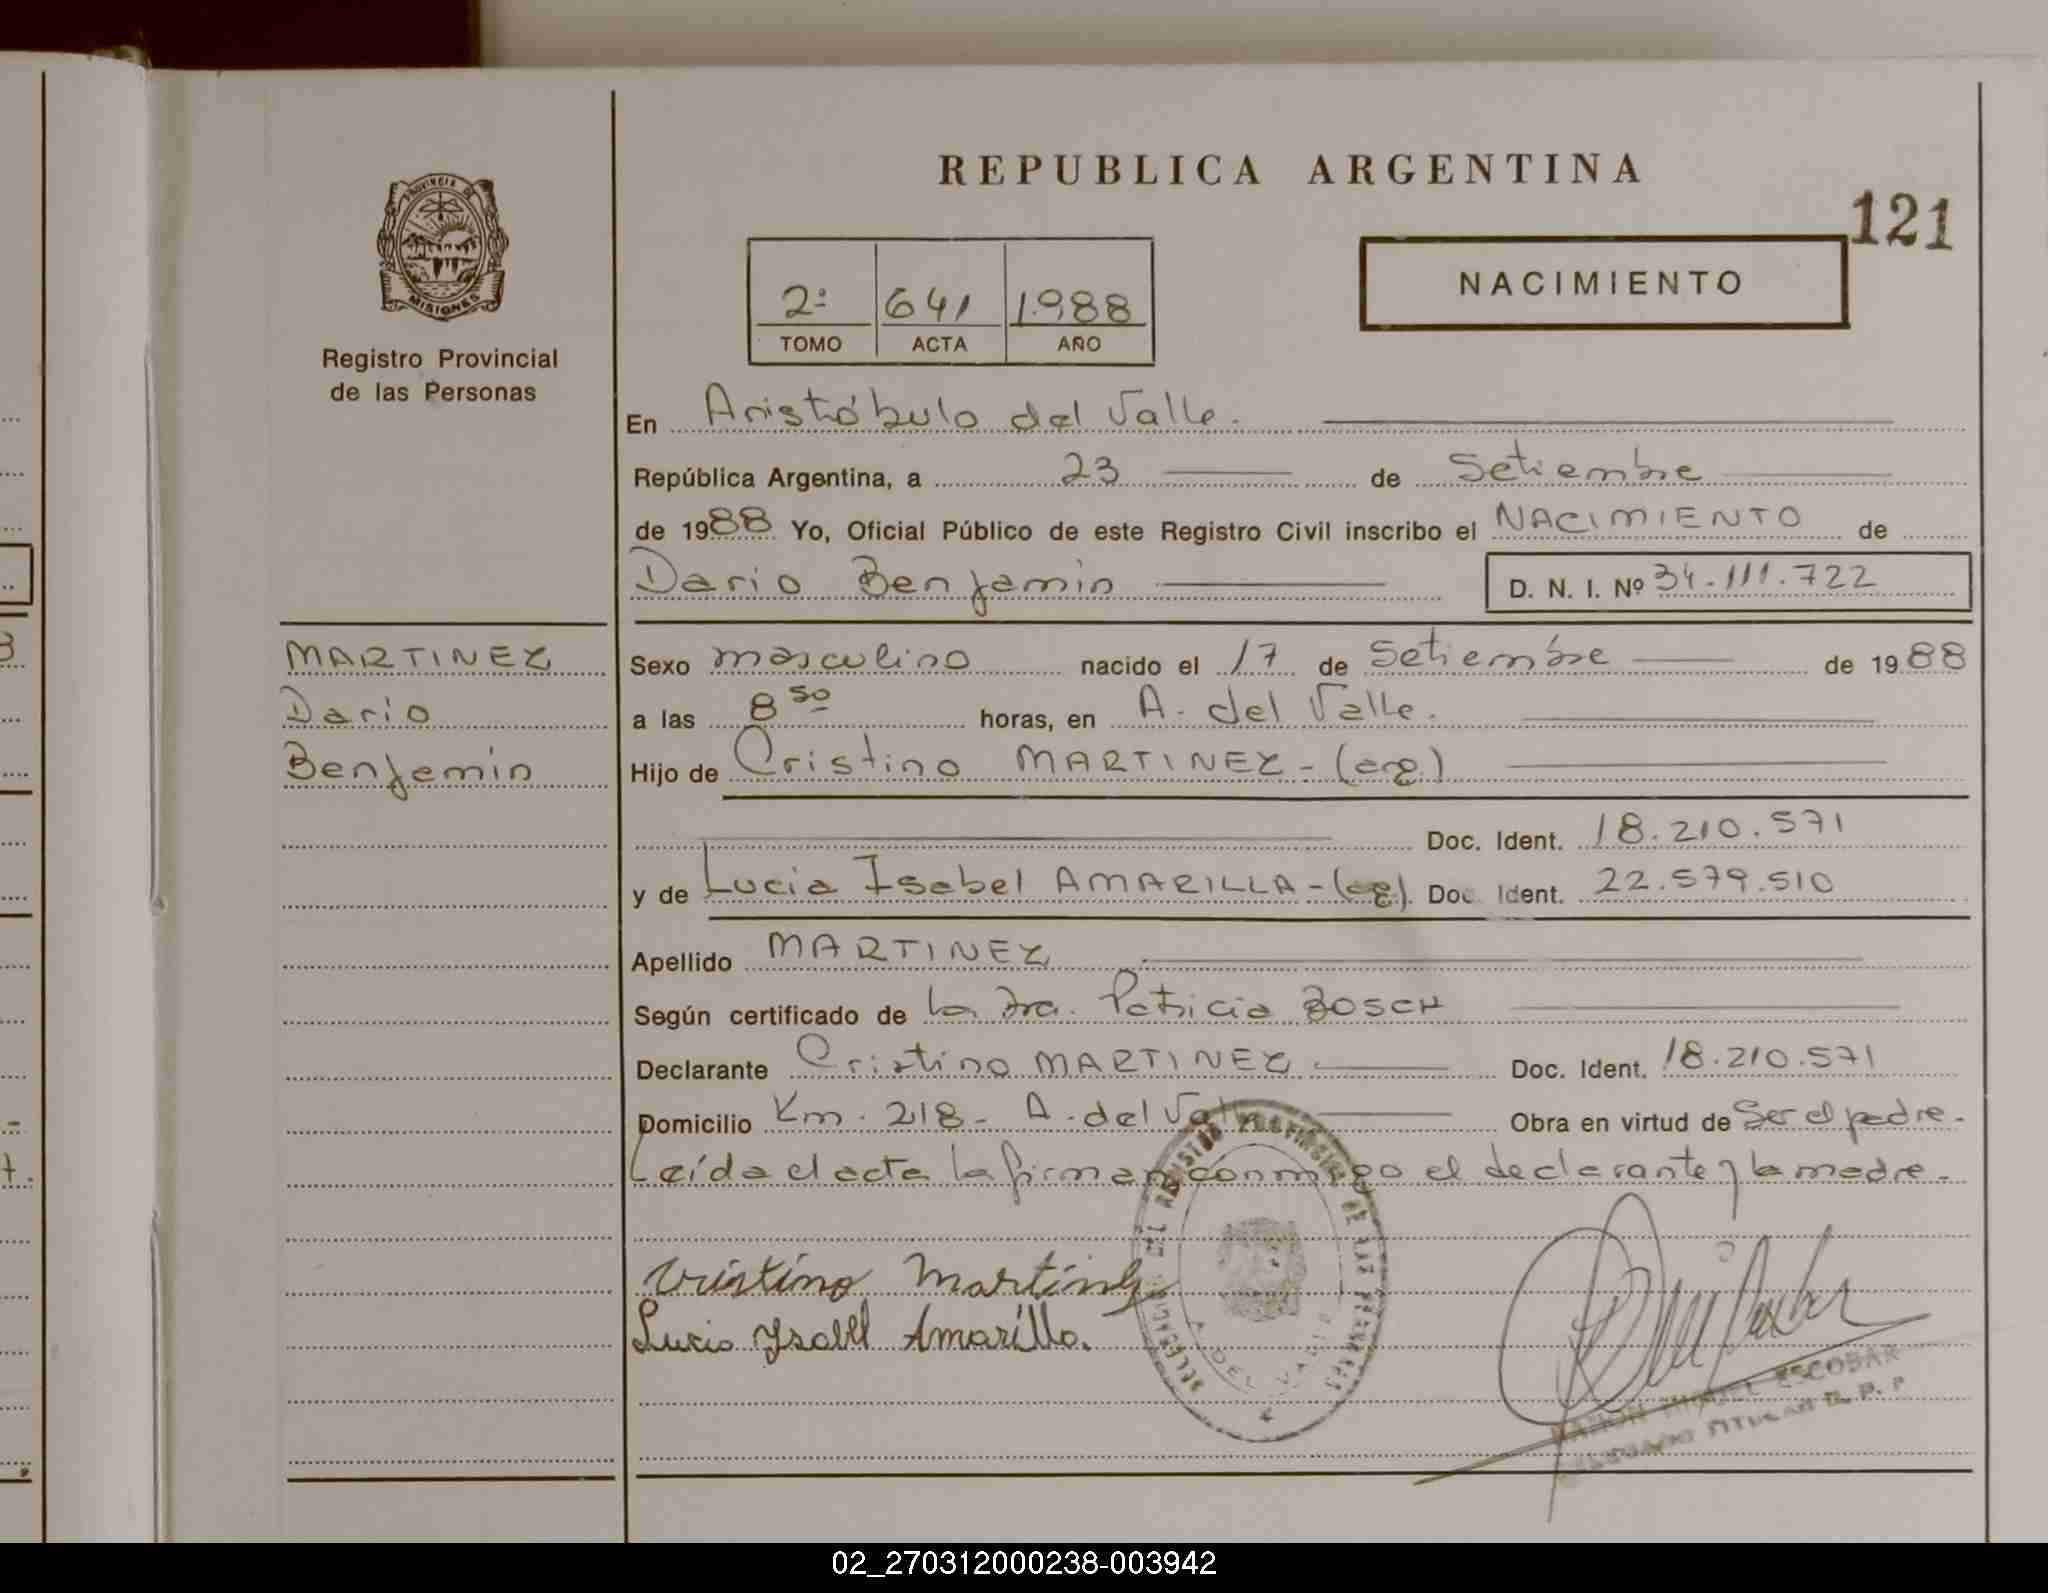 REPUBLICA ARGENTINA
121
PROVINCIA DE
MISIONES
Registro Provincial
de las Personas
2º 641 1.988
TOMO ACTA AÑO
NACIMIENTO
En Aristóbulo del Valle.
República Argentina, a 23 de Setiembre
de 1988 Yo, Oficial Público de este Registro Civil inscribo el NACIMIENTO de
Dario Benjamin D. N. I. Nº 34.111.722
MARTINEZ
Dario
Benjamin
Sexo masculino nacido el 17 de Setiembre de 1988
a las 8 50 horas, en A. del Valle.
Hijo de Cristino MARTINEZ - (arg.)
Doc. Ident. 18.210.571
y de Lucia Isabel AMARILLA - (arg). Doc. Ident. 22.579.510
Apellido MARTINEZ
Según certificado de la Dra. Patricia BOSCH
Declarante Cristino MARTINEZ Doc. Ident. 18.210.571
Domicilio Km. 218 - A. del Valle Obra en virtud de Ser el padre.
Leída el acta la firman conmigo el declarante y la madre.
Cristino Martinez
Lucia Ysabel Amarilla.
A. DEL VALLE
RAMON MIGUEL ESCOBAR
TITULAR R. P. P
02_270312000238-003942